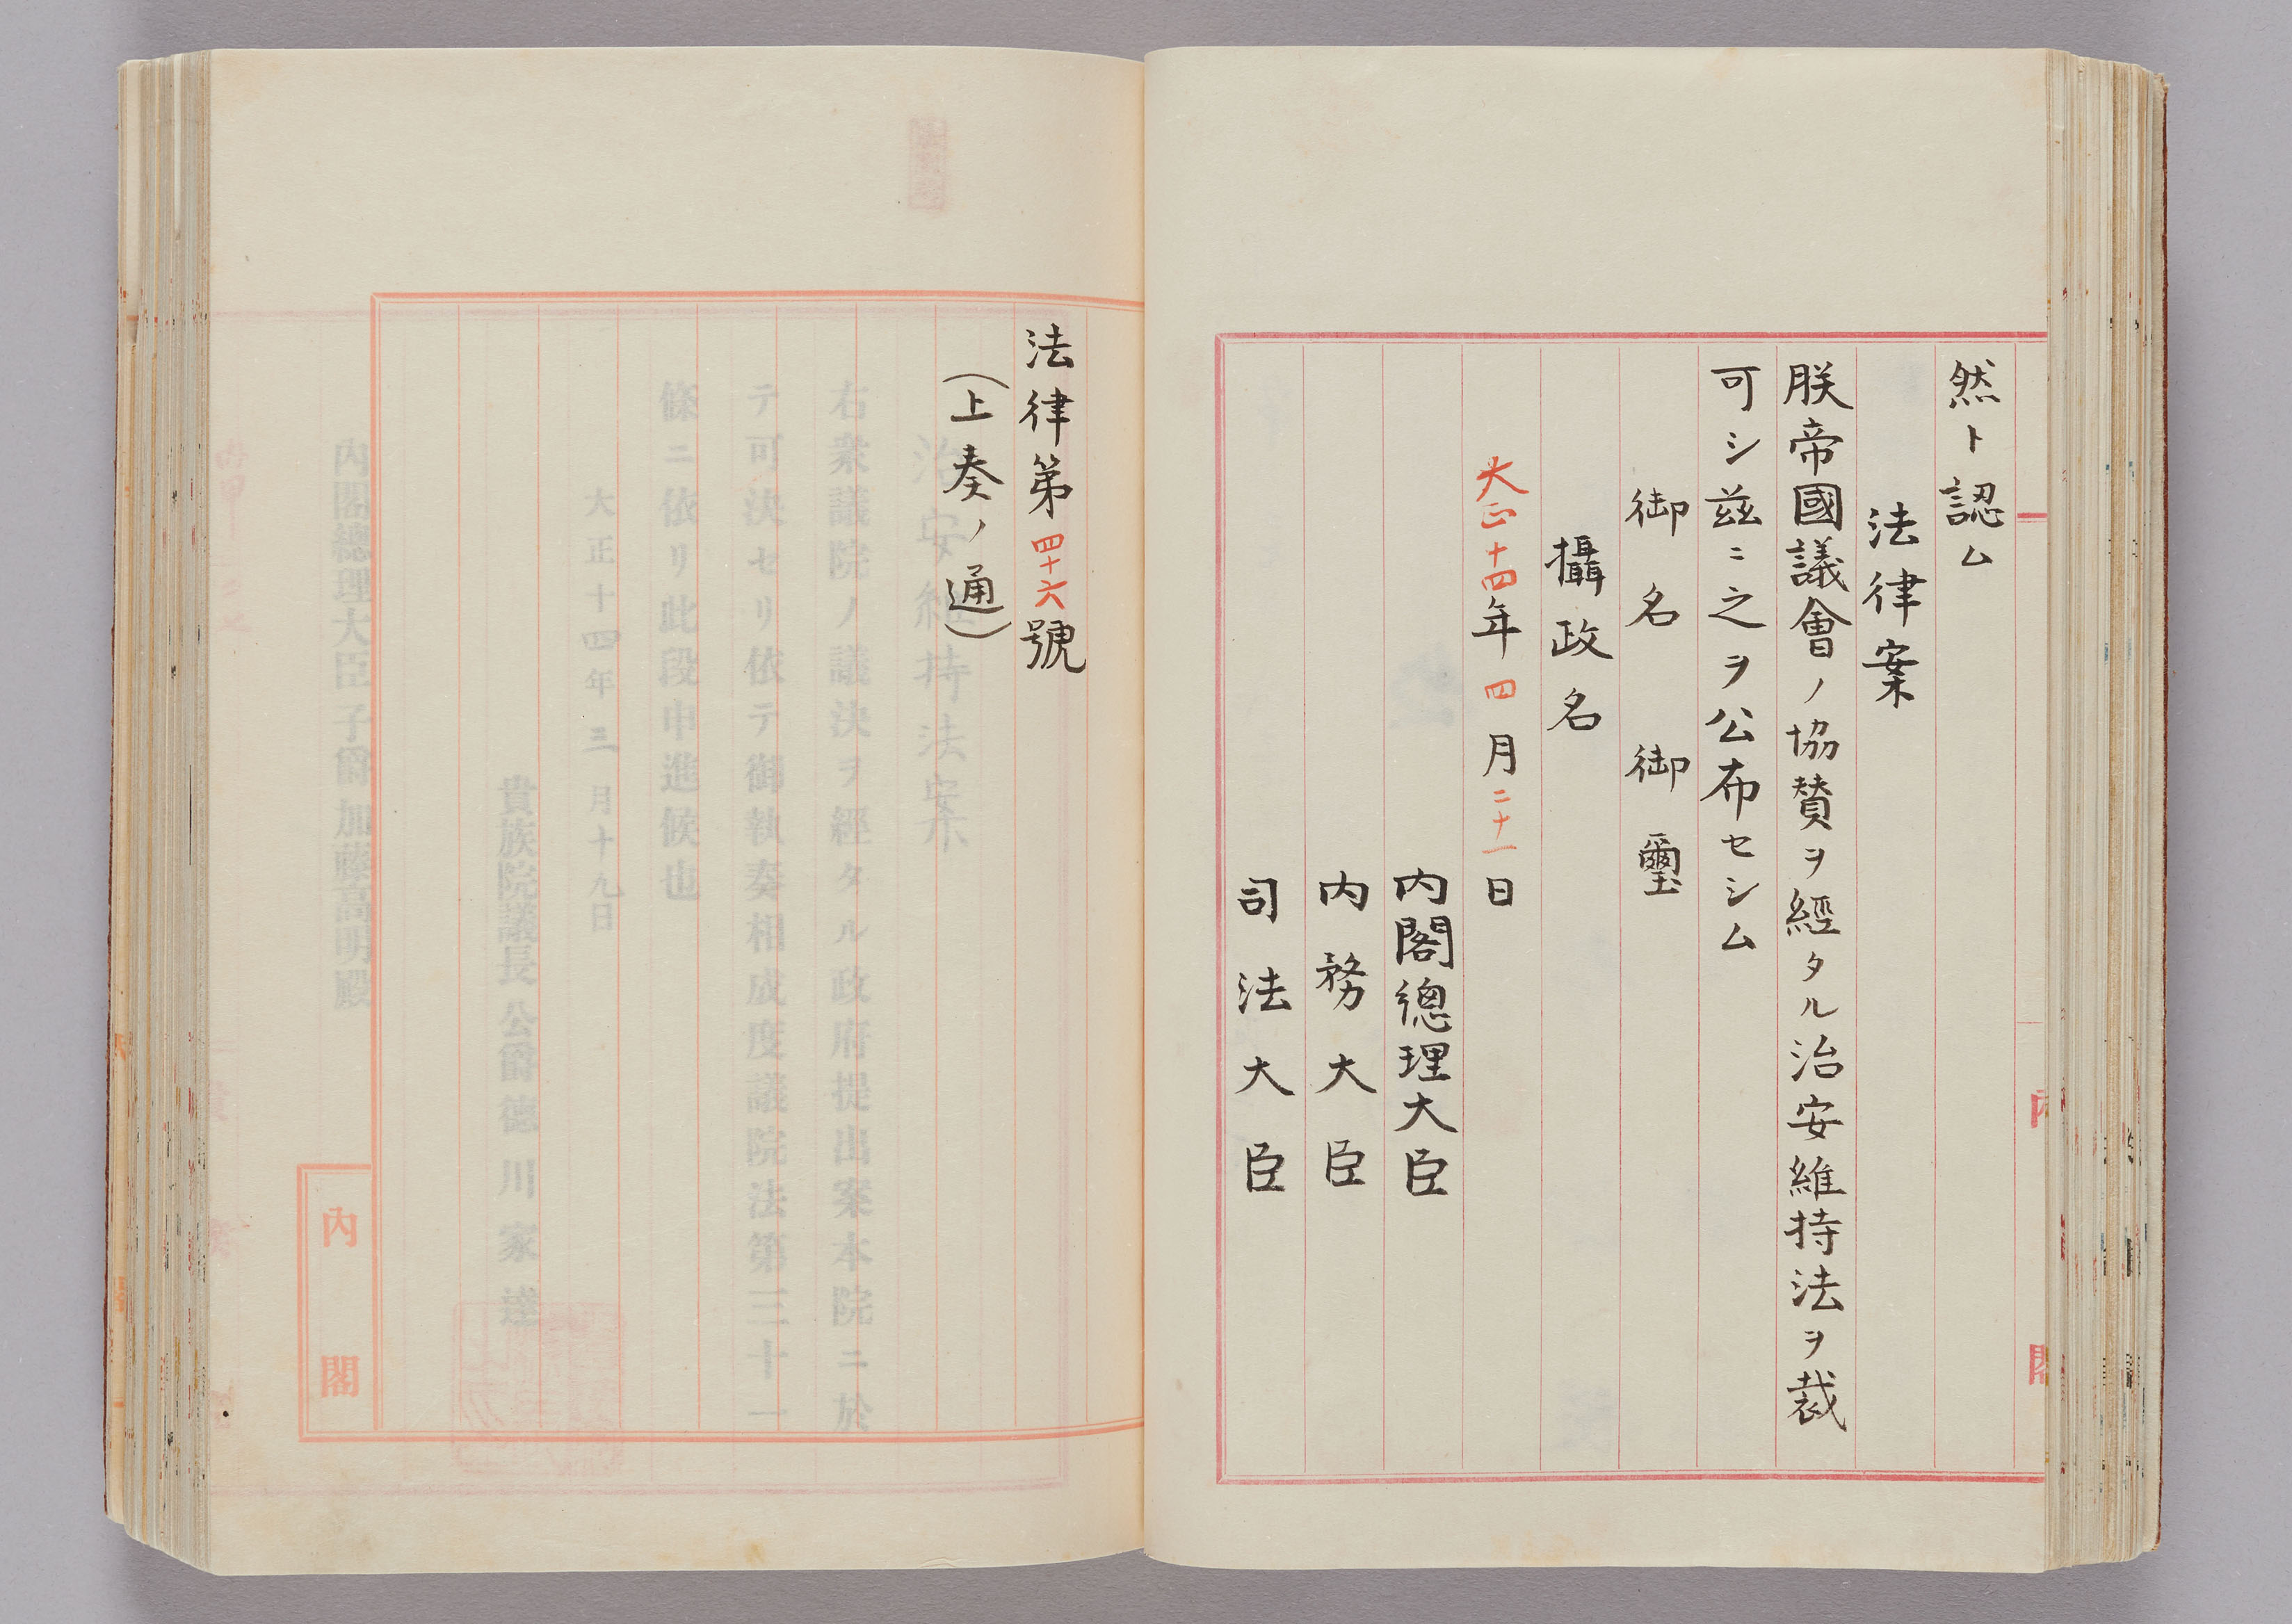 然ト認ム
法律案
朕帝國議會ノ協賛ヲ經タル治安維持法ヲ裁
可シ茲ニ之ヲ公布セシム
御名 御璽
攝政名
大正十四年四月二十一日
内閣總理大臣
内務大臣
司法大臣
法律第四十六號
(上奏ノ通)
治安維持法案
右衆議院ノ議決ヲ經タル政府提出案本院ニ於
テ可決セリ依テ御執奏相成度議院法第三十一
條ニ依リ此段申進候也
大正十四年三月十九日
貴族院議長公爵德川家達
内閣總理大臣子爵加藤高明殿
內閣